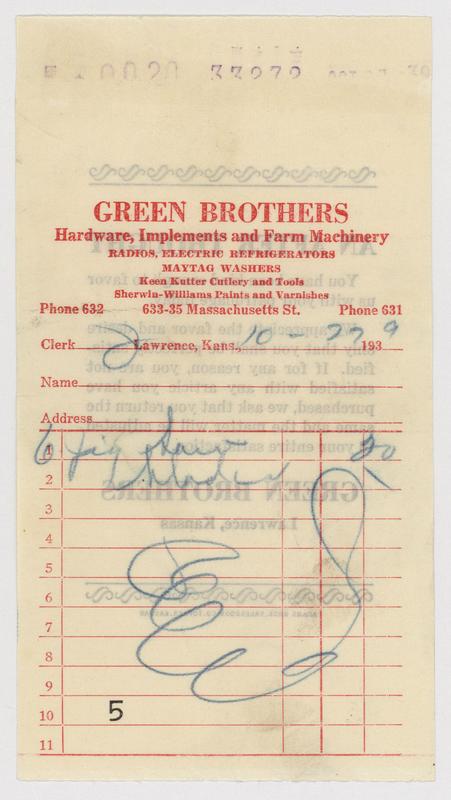 0020 33272 OCT 27 39
GREEN BROTHERS
Hardware, Implements and Farm Machinery
RADIOS, ELECTRIC REFRIGERATORS
MAYTAG WASHERS
Keen Kutter Cutlery and Tools
Sherwin-Williams Paints and Varnishes
Phone 632 633-35 Massachusetts St. Phone 631
Clerk 2 Lawrence, Kans., 10-27 1939
Name
Address
1 6 jig saw 20
2 blades
3
4
5
6
7
8
9
10 5
11